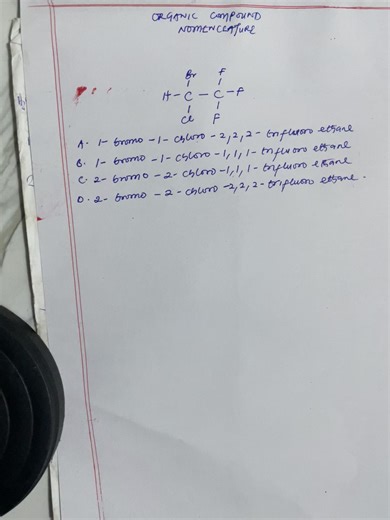 ORGANIC COMPOUND
NOMENCLATURE
Br F
H - C - C - F
Cl F
A. 1- bromo -1- chloro -2,2,2- trifluoro ethane
B. 1- bromo -1- chloro -1,1,1- trifluoro ethane
C. 2- bromo -2- chloro -1,1,1- trifluoro ethane
D. 2- bromo -2- chloro -2,2,2- trifluoro ethane.